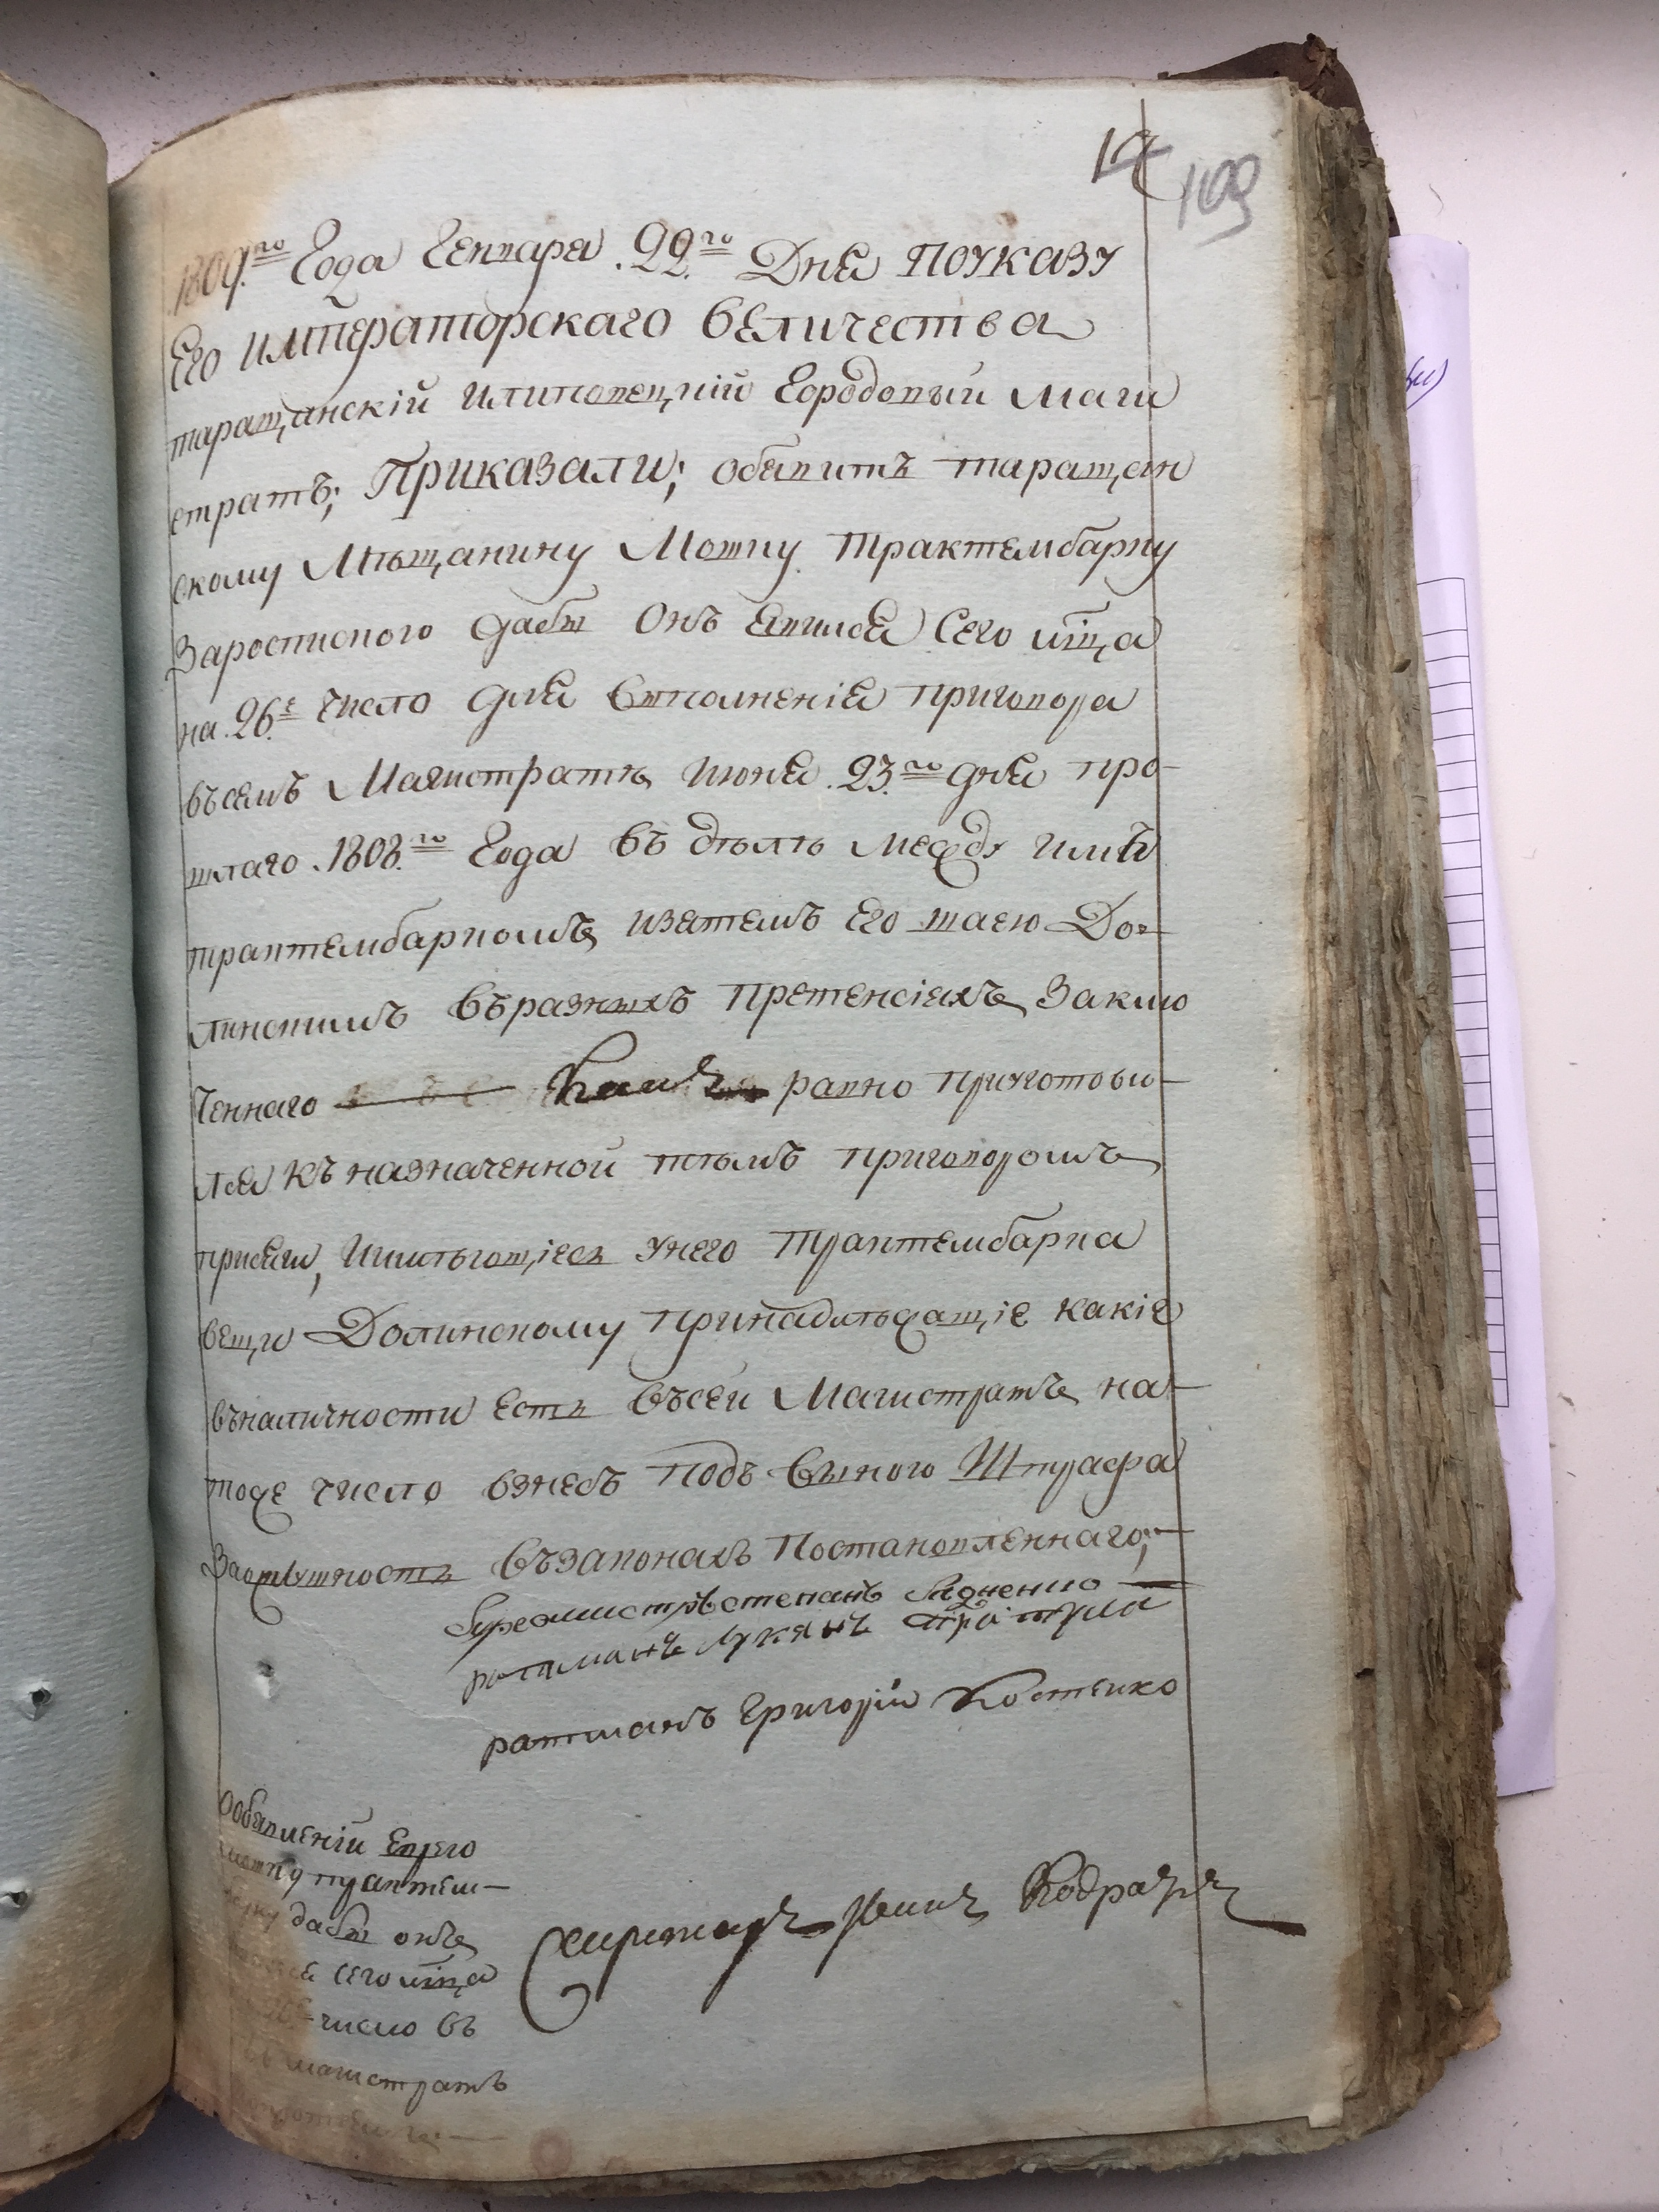 14 109
1809.го Года Генваря .22.го Дня ПОУКАЗУ
Его ИМПЕРАТОРСКАГО ВЕЛИЧЕСТВА
таращанскій илиповецкій Городовый Маги
стратъ; ПРИКАЗАЛИ; обявить таращан
скому Мѣщанину Мошку Трактембарку
Зароспиского дабы Онъ явился Сего мца
на .26.е число для выполненія приговора
въсемъ Магистратѣ Июня .23.го дня про-
шлаго .1808.го Года въ дѣлѣ между имъ
трактембаркомъ изятемъ Его шаею До-
линскимъ въразныхъ претенсіяхъ Заклю
ченнаго какъ равно приуготови-
лся къ назначенной тѣмъ приговоромъ
присяги, Иимѣющіесь унего Трактембарка
вещи Долинскому принадлѣжащіе какіе
въналичности есть въсей Магистратъ на-
тоже число взнесъ подъ виного Штрафа
Заослушность възаконахъ Постановленнаго;-
Бургомистръ степанъ
ратманъ Лукянъ
ратманъ Григорій Костенко
Ообявленій Еврею
мошку трактем-
дабы онъ
сего мца
число въ
магистратъ
Секретарь